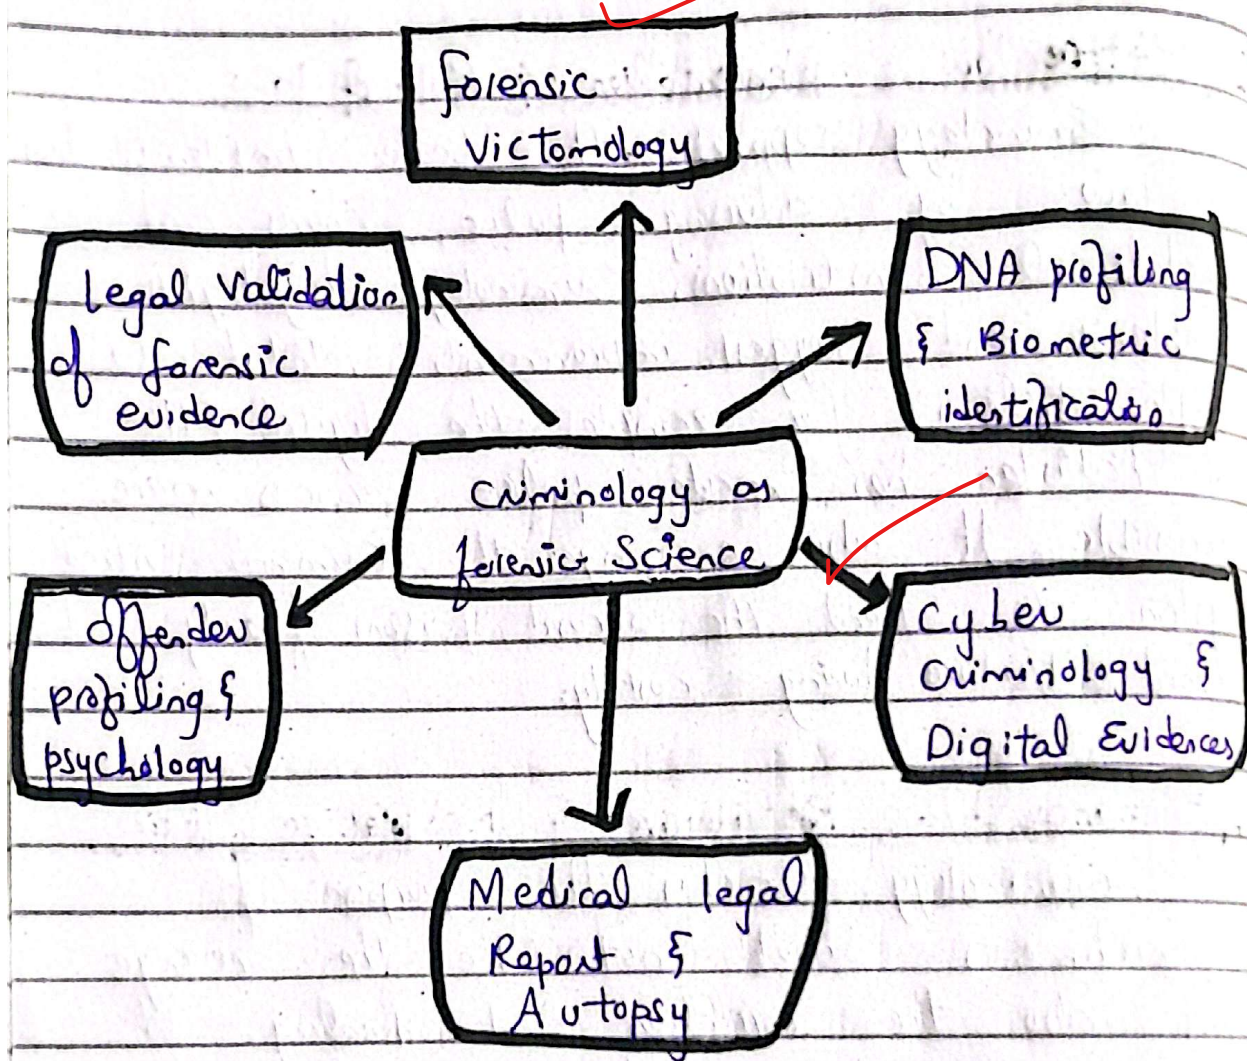 forensic
Victomology
Legal Validation
of forensic
evidence
DNA profiling
& Biometric
identification
Criminology as
forensic Science
Offender
profiling &
psychology
Cyber
Criminology &
Digital Evidences
Medical legal
Report &
Autopsy